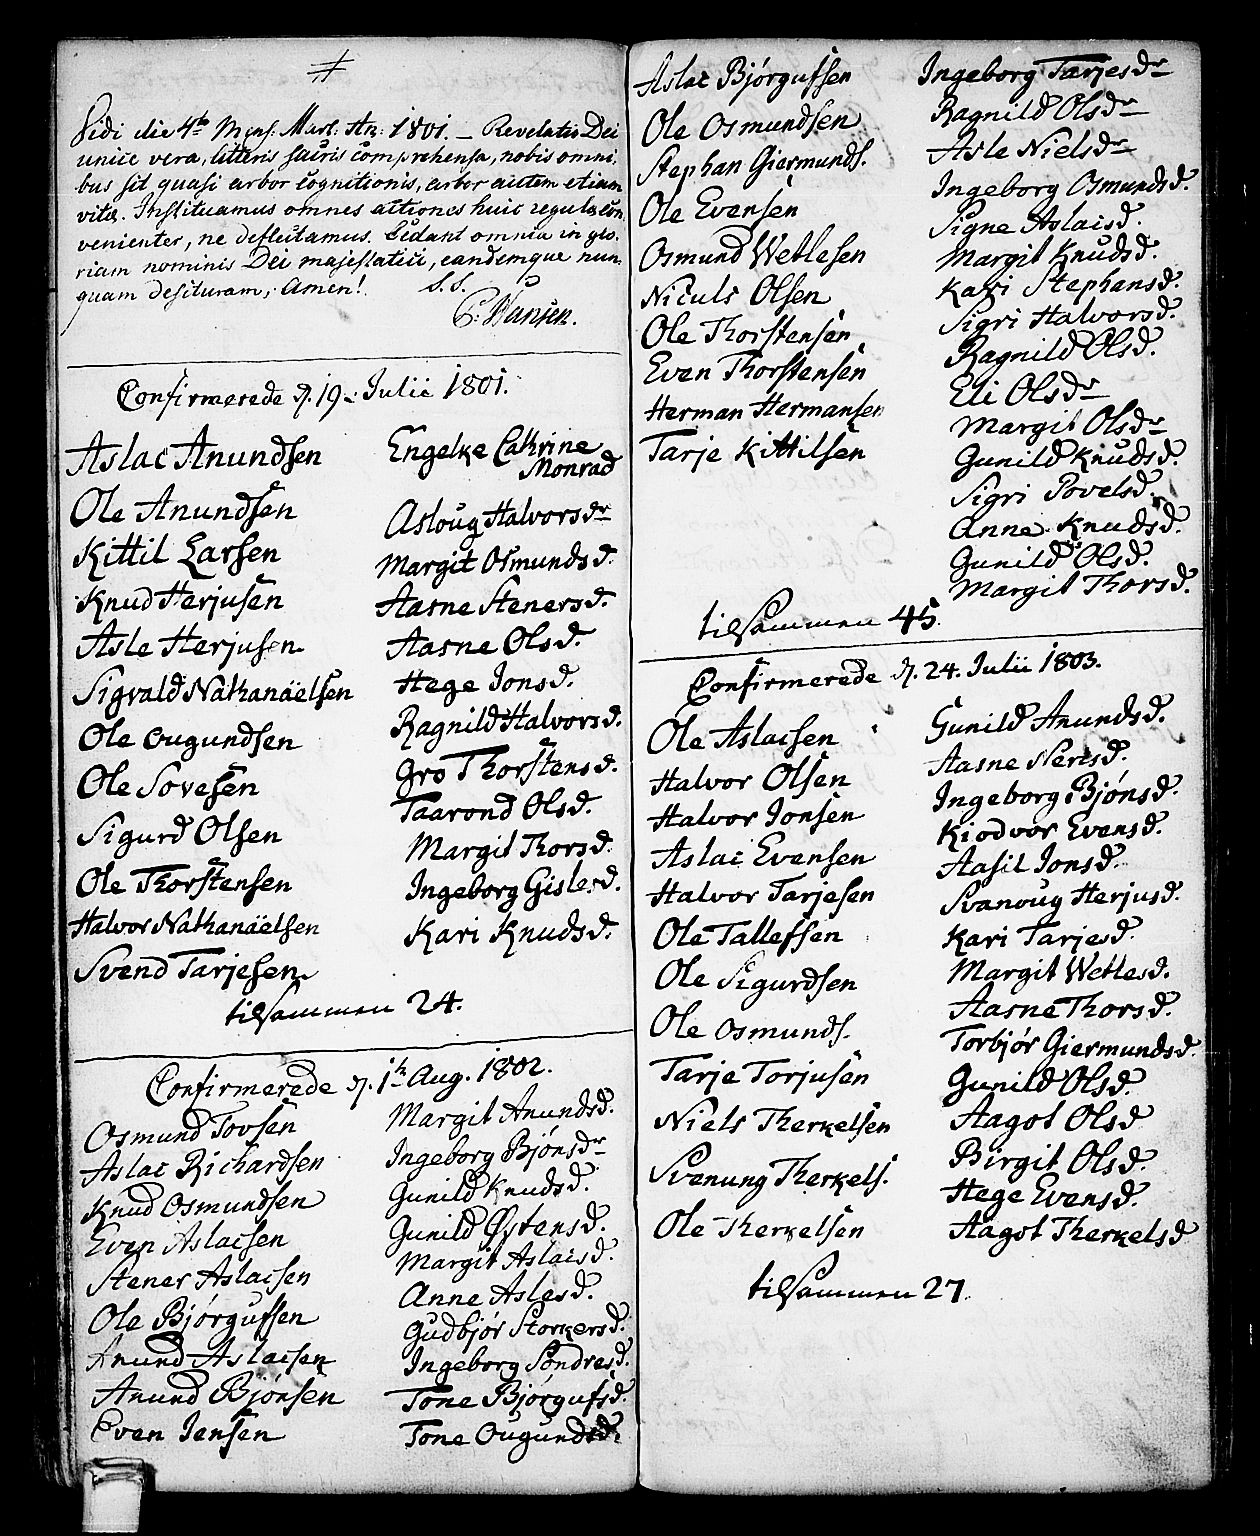 Vidi die 4to Mens. Mart. An: 1801. – Revelatio Dei
unice vera, litteris sacris comprehensa, nobis omni-
bus sit quasi arbor cognitionis, arbor autem etiam
vitæ. Instituamus omnes actiones huic regulæ con-
venienter, ne deflectamus. Cedant omnia in glo-
riam nominis Dei majestatici, eandemque nun-
quam desituram, Amen! S.S.
P: Hansen.
Confirmerede d. 19. Julii 1801.
Aslac Anundsen
Ole Anundsen
Kittil Larsen
Knud Herjusen
Asle Herjusen
Sigvald Nathanäelsen
Ole Ougundsen
Ole Sovesen
Sigurd Olsen
Ole Thorstensen
Halvor Nathanäelsen
Svend Tarjesen
Engelke Cathrine
Monrad
Asloug Halvorsdr
Margit Osmundsd.
Aasne Stenersd.
Aasne Olsd.
Hege Jonsd.
Ragnild Halvorsd.
Gro Thorstensd.
Taarond Olsd.
Margit Thorsd.
Ingeborg Gislesd.
Kari Knudsd.
tilsammen 24.
Confirmerede d. 1ste Aug. 1802.
Osmund Tovsen
Aslac Richardsen
Knud Osmundsen
Even Aslacsen
Stener Aslacsen
Ole Bjørgufsen
Anund Aslacsen
Anund Bjønsen
Even Jensen
Margit Anundsd.
Ingeborg Bjønsdr
Gunild Knudsd.
Gunild Østensd.
Margit Aslacsd.
Anne Aslesd.
Gudbjør Storkersd.
Ingeborg Søndresd.
Tone Bjørgufsd.
Tone Ougundsd.
Aslac Bjørgufsen
Ole Osmundsen
Stephan Giermunds.
Ole Evensen
Osmund Wetlesen
Niculs Olsen
Ole Thorstensen
Even Thorstensen
Herman Hermansen
Tarje Kittilsen
Ingeborg Tarjesdr
Ragnild Olsdr
Asle Nielsdr
Ingeborg Osmundsd.
Signe Aslacsd.
Margit Knudsd.
Kari Stephansd.
Sigri Halvorsd.
Ragnild Olsd.
Eli Olsdr
Margit Olsdr
Gunild Knudsd.
Sigri Povelsd.
Anne Knudsd.
Gunild Olsd.
Margit Thorsd.
tilsammen 45.
Confirmerede d. 24. Julii 1803.
Ole Aslacsen
Halvor Olsen
Halvor Jonsen
Aslac Evensen
Halvor Tarjesen
Ole Tallefsen
Ole Sigurdsen
Ole Osmunds.
Tarje Torjusen
Niels Therkelsen
Svenung Therkels.
Ole Therkelsen
Gunild Anundsd.
Aasne Nerisd.
Ingeborg Bjønsd.
Kiodvor Evensd.
Aasil Jonsd.
Svanoug Herjusd.
Kari Tarjesd.
Margit Wetlesd.
Aasne Thorsd.
Torbjør Giermundsd.
Gunild Olsd.
Aagot Olsd
Birgit Olsd.
Hege Evensd.
Aagot Therkelsd
tilsammen 27.